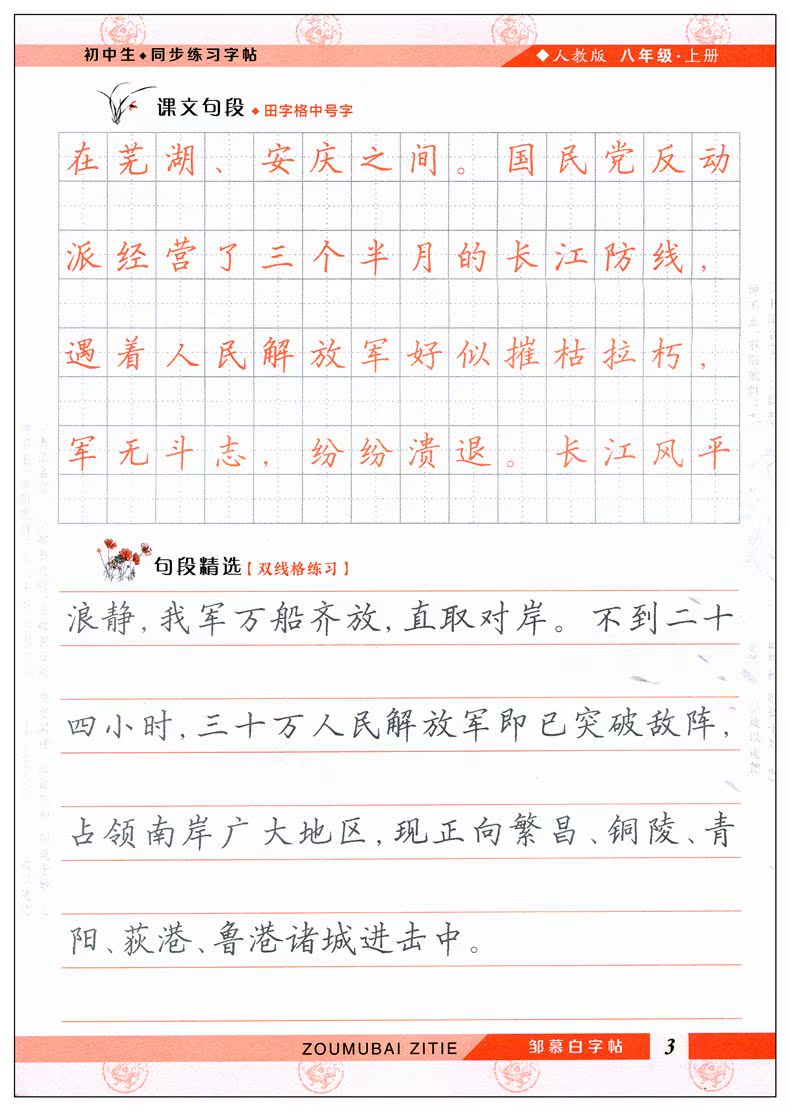 初中生◆同步练习字帖
◆人教版 八年级·上册
课文句段 ◆田字格中号字
在芜湖、安庆之间。国民党反动
派经营了三个半月的长江防线，
遇着人民解放军好似摧枯拉朽，
军无斗志，纷纷溃退。长江风平
句段精选【双线格练习】
浪静，我军万船齐放，直取对岸。不到二十
四小时，三十万人民解放军即已突破敌阵，
占领南岸广大地区，现正向繁昌、铜陵、青
阳、荻港、鲁港诸城进击中。
ZOUMUBAI ZITIE
邹慕白字帖
3